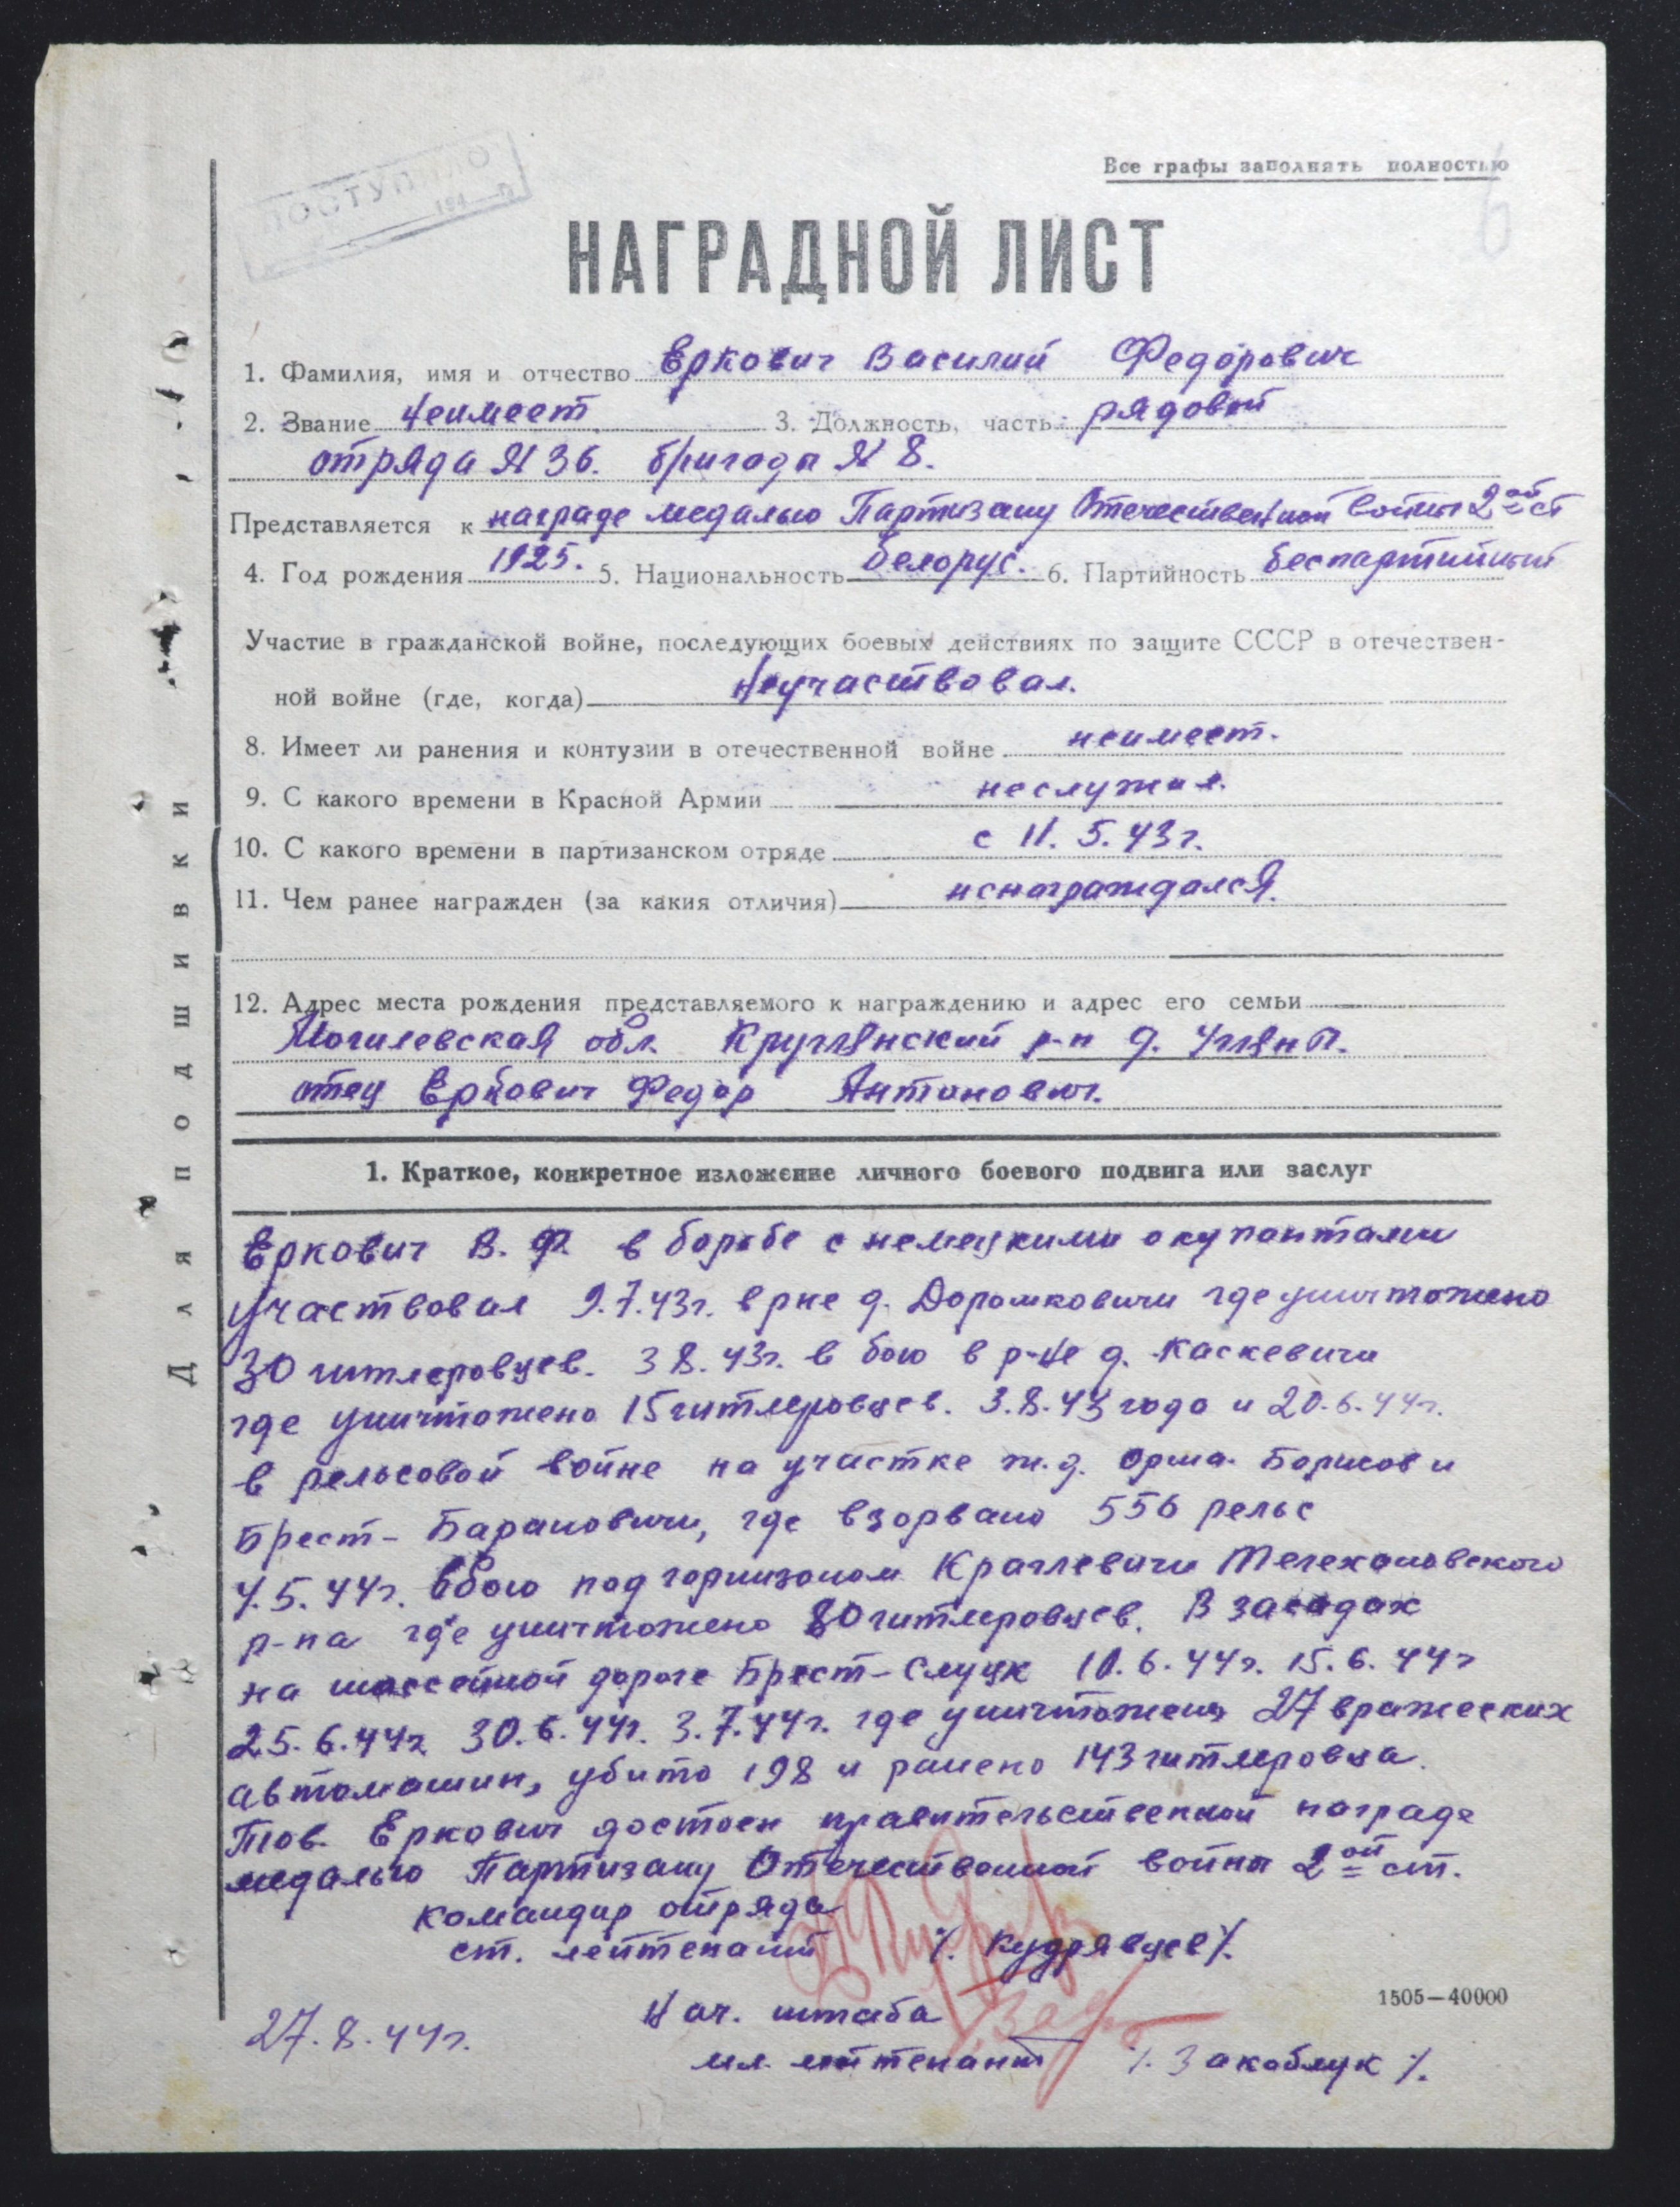 ПОСТУПИЛО
194 г.
Все графы заполнять полностью
6
НАГРАДНОЙ ЛИСТ
1. Фамилия, имя и отчество Еркович Василий Федорович
2. Звание Неимеет 3. Должность, часть рядовой
отряда № 36. бригады № 8.
Представляется к награде медалью Партизану Отечественной войны 2ой ст
4. Год рождения 1925. 5. Национальность белорус. 6. Партийность беспартийный
Участие в гражданской войне, последующих боевых действиях по защите СССР в отечествен-
ной войне (где, когда) Неучаствовал.
8. Имеет ли ранения и контузии в отечественной войне неимеет.
9. С какого времени в Красной Армии неслужил.
10. С какого времени в партизанском отряде с 11. 5. 43 г.
11. Чем ранее награжден (за какия отличия) ненаграждался.
12. Адрес места рождения представляемого к награждению и адрес его семьи
Могилевская обл. Круглянский р-н д. Угляны.
отец Еркович Федор Антонович.
Для подшивки
1. Краткое, конкретное изложение личного боевого подвига или заслуг
Еркович В. Ф. в борьбе с немецкими окупантами
участвовал 9.7.43г. в рне д. Дорошковичи где уничтожено
30 гитлеровцев. 3 8. 43г. в бою в р-не д. Каскевичи
где уничтожено 15 гитлеровцев. 3.8.43 года и 20.6.44г.
в рельсовой войне на участке ж.д. Орша-Борисов и
Брест-Барановичи, где взорвано 556 рельс
4.5.44г. в бою под горнизоном Краглевичи Телехановского
р-на где уничтожено 80 гитлеровцев. В засадах
на шоссейной дороге Брест-Слуцк 10.6.44г. 15.6.44г
25.6.44г 30.6.44г. 3.7.44г. где уничтожены 27 вражеских
автомашин, убито 198 и ранено 143 гитлеровца.
Тов. Еркович достоен правительственной награде
медалью Партизану Отечественной войны 2ой ст.
Командир отряда
ст. лейтенант /. Кудрявцев /.
Нач. штаба
мл. лейтенант /. Закаблук /.
27.8.44г.
1505—40000